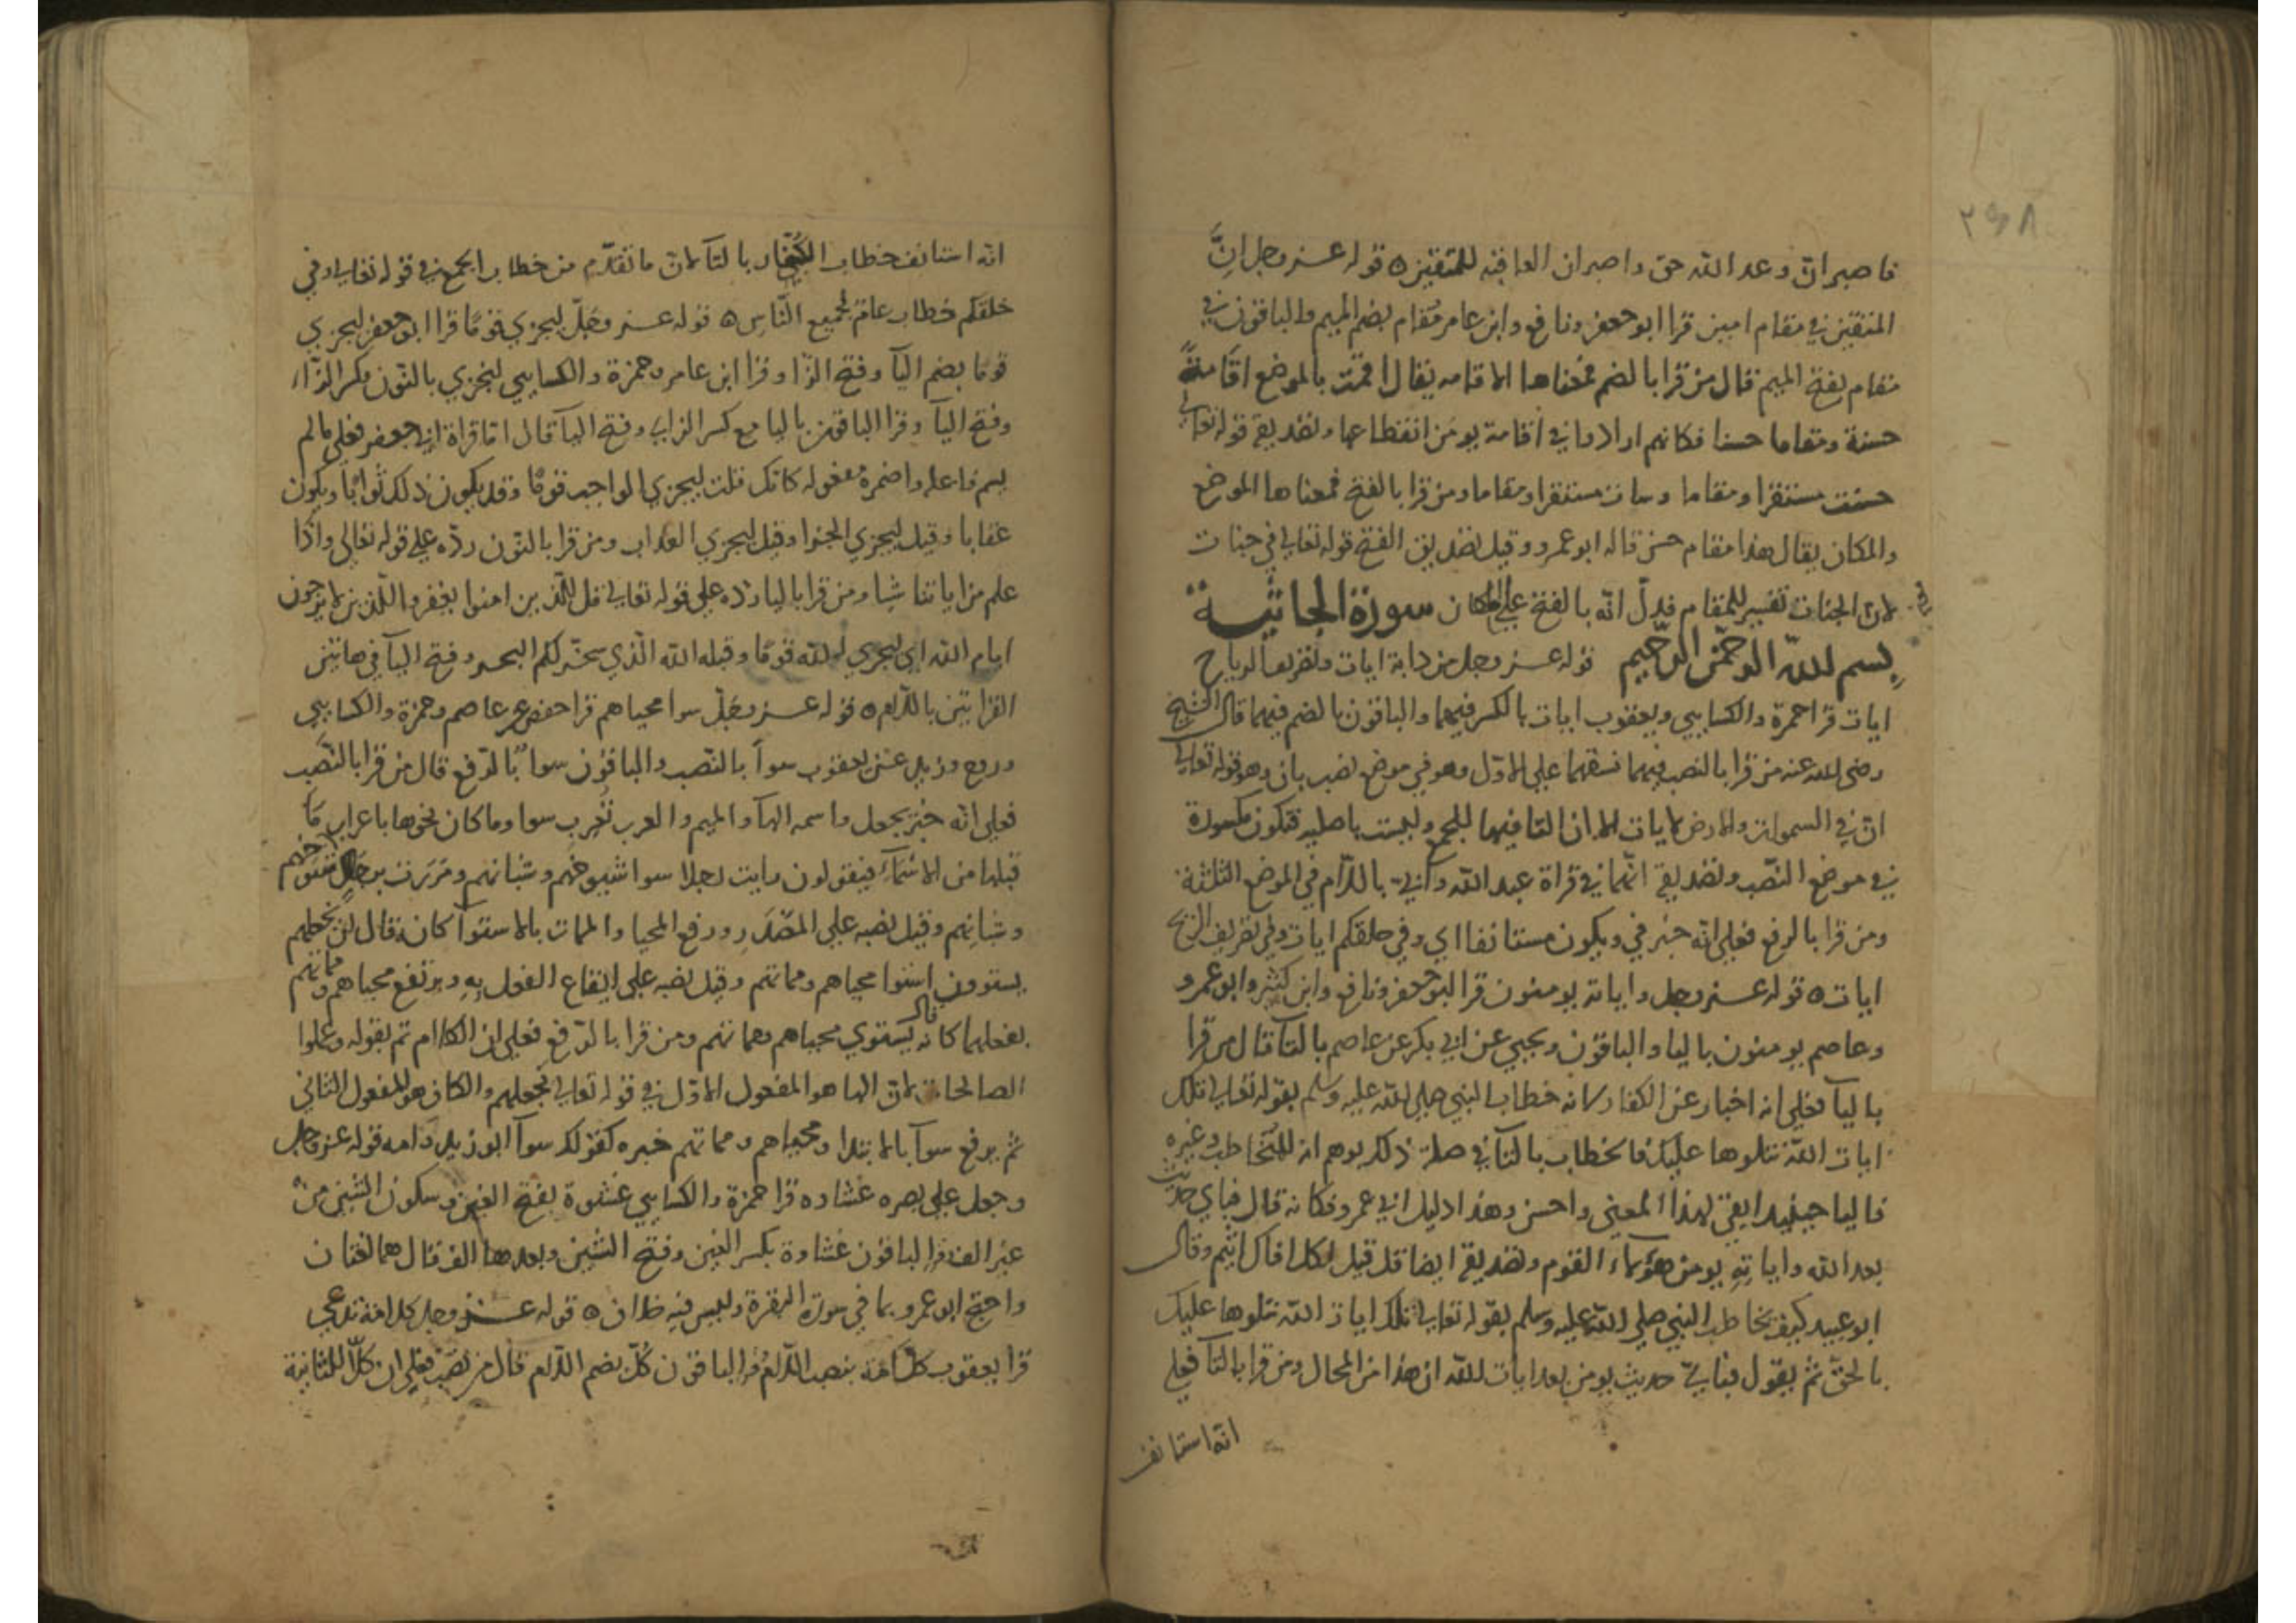 ٢٩٨
فاصبر ان وعد الله حق واصبر ان العاقبه للمتقين ه قوله عز وجل انّ
المتقين في مقام امين قرا ابو جعفر ونافع وابن عامر مُقام بضم الميم والباقون في
مقام بفتح الميم قال من قرا بالضم فمعناها الاقامه يقال اقمت بالموضع اقامة
حسنة ومقاما حسنا فكانهم ارادوا في اقامة يومن انقطاعها وتصديقه قوله تعالى
حسنت مستقرا ومقاما وسات مستقرا ومقاما ومن قرا بالفتح فمعناها الموضع
والمكان يقال هذا مقام حسن قاله ابو عمرو وقيل تصديق الفتح قوله تعالى في جنات
لان الجنات تفسير للمقام فدلّ انّه بالفتح على المكان سورة الجاثية
بسم الله الرحمن الرحيم قوله عز وجل من دابة ايات وتصريف الرياح
ايات قرا حمزة والكسايي ويعقوب ايات بالكسر فيهما والباقون بالضم فيهما قال الشيخ
رضي الله عنه من قرا بالنصب فيهما نسقهما على الاول وهو في موضع نصب بان وهو قوله تعالى
ان في السموات والارض لايات الا ان التا فيها للجمع وليست باصليه فتكون مكسورة
في موضع النصب وتصديقه انّهما في قراة عبد الله وأبي باللام في الموضع الثلثة
ومن قرا بالرفع فعلى انّه خبر في ويكون مستانفا اي وفي خلقكم ايات وفي تصريف الرياح
ايات ه قوله عز وجل واياته يومنون قرا ابو جعفر ونافع وابن كثير وابو عمرو
وعاصم يومنون باليا والباقون ويحيي عن ابي بكر عن عاصم بالتا قال من قرا
باليا فعلى انه اخبار عن الكفار لانه خطاب النبي صلى الله عليه وسلم بقوله تعالى تلك
ايات الله نتلوها عليك فالخطاب بالتا في صلة ذلك يوهم انه للمخاطب وغيره
فاليا حينيد ابقى لهذا المعنى واحسن وهذا دليل ابي عمرو فكانه قال فباي حديث
بعد الله واياته يومن هؤلاء القوم وتصديقه ايضا قد قيل لكل افاك اثيم وقال
ابو عبيد كيف يخاطب النبي صلى الله عليه وسلم بقوله تعالى تلك ايات الله نتلوها عليك
بالحق ثم يقول فباي حديث يومن بعد ايات الله ان هذا من المحال ومن قرا بالتا فعلى
انه استانف
انه استانف خطاب الكفار بالتا لان ما تقدّم من خطاب الجمع في قوله تعالى وفي
خلقكم خطاب عام لجميع النّاس ه قوله عز وجلّ ليجزي قومًا قرا ابو جعفر ليجزي
قومًا بضم اليا وفتح الزّا وقرا ابن عامر وحمزة والكسايي لنجزي بالنّون بكسر الزّاء
وفتح اليا وقرا الباقون باليا مع كسر الزاي وفتح اليا قال اما قراة ابي جعفر فعلى ما لم
يسم فاعله واضمره مفعوله كانك قلت ليجزي الواجب قومًا وقد يكون ذلك ثوابًا ويكون
عقابا وقيل ليجزي الجزا وقيل ليجزي العذاب ومن قرا بالنّون ردّه على قوله تعالى واذا
علم من اياتنا شيا ومن قرا باليا ردّه على قوله تعالى قل للّذين امنوا يغفروا للّذين لا يرجون
ايام الله اي ليجزي الله قومًا وقبله الله الّذي سخّر لكم البحر وفتح اليا في هاتين
القراتين باللام ه قوله عز وجلّ سوا محياهم قرا حفص عن عاصم وحمزة والكسايي
وروح وزيد عن يعقوب سواً بالنّصب والباقون سواً بالرّفع قال من قرا بالنّصب
فعلى انّه خبر يجعل واسمه الها والميم والعرب تُعرب سوا وما كان نحوها باعراب مَا
قبلها من الاسماء فيقولون رايت رجلا سوا شيوخهم وشبانهم ومررت برجل سوا شيوخهم
وشبانهم وقيل نصبه على المصدر ورفع المحيا والممات بالاستوا كانه قال لن نجعلهم
يستوون استوا محياهم ومماتهم وقيل نصبه على ايقاع الفعل بِهِ ويرتفع محياهم ومماتهم
بفعلهما كانه قال يستوي محياهم ومماتهم ومن قرا بالرّفع فعلى ان الكلام تم بقوله وعملوا
الصالحات لان الها هو المفعول الاوّل في قوله تعالى نجعلهم والكاف هو المفعول الثاني
ثم يرفع سوآ بالابتدا ومحياهم ومماتهم خبره كقولك سوآ ابو زيد وامه قوله عز وجل
وجعل على بصره غشاوه قرا حمزة والكسايي غشوة بفتح الغين وسكون الشين من
غير الف وقرا الباقون غشاوة بكسر الغين وفتح الشين وبعدها الف قال هما لغتان
واحتج ابو عمرو بما في سورة البقرة وليس فيه خلاف ه قوله عز وجل كل امة تدعى
قرا يعقوب كلَّ امّة بنصب اللّام وقرا الباقون كُلُّ بضم اللّام قال من نصَبَ فعلى ان كلّا الثانية